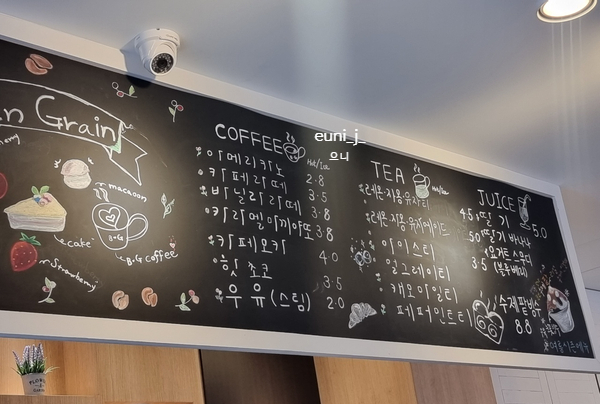 n Grain
macaroon
B&G
cake
B.G coffee
Strawberry
COFFEE
Hot/Ice
아메리카노 2.8
카페라떼 3.5
바닐라라떼 3.8
카라멜마끼아또 3.8
카페모카 4.0
핫 쵸코 3.5
우유 (스팀) 2.0
euni_j_
으니
TEA
Hot/Ice
레몬·자몽·유자티 4.5
레몬·자몽·유자에이드 5.0
아이스티 3.5
얼그레이티
캐모마일티
페퍼민트티
JUICE
딸기 5.0
딸기 바나나
요거트 스무디
(블루베리)
수제팥빙수
8.8
FLORAL